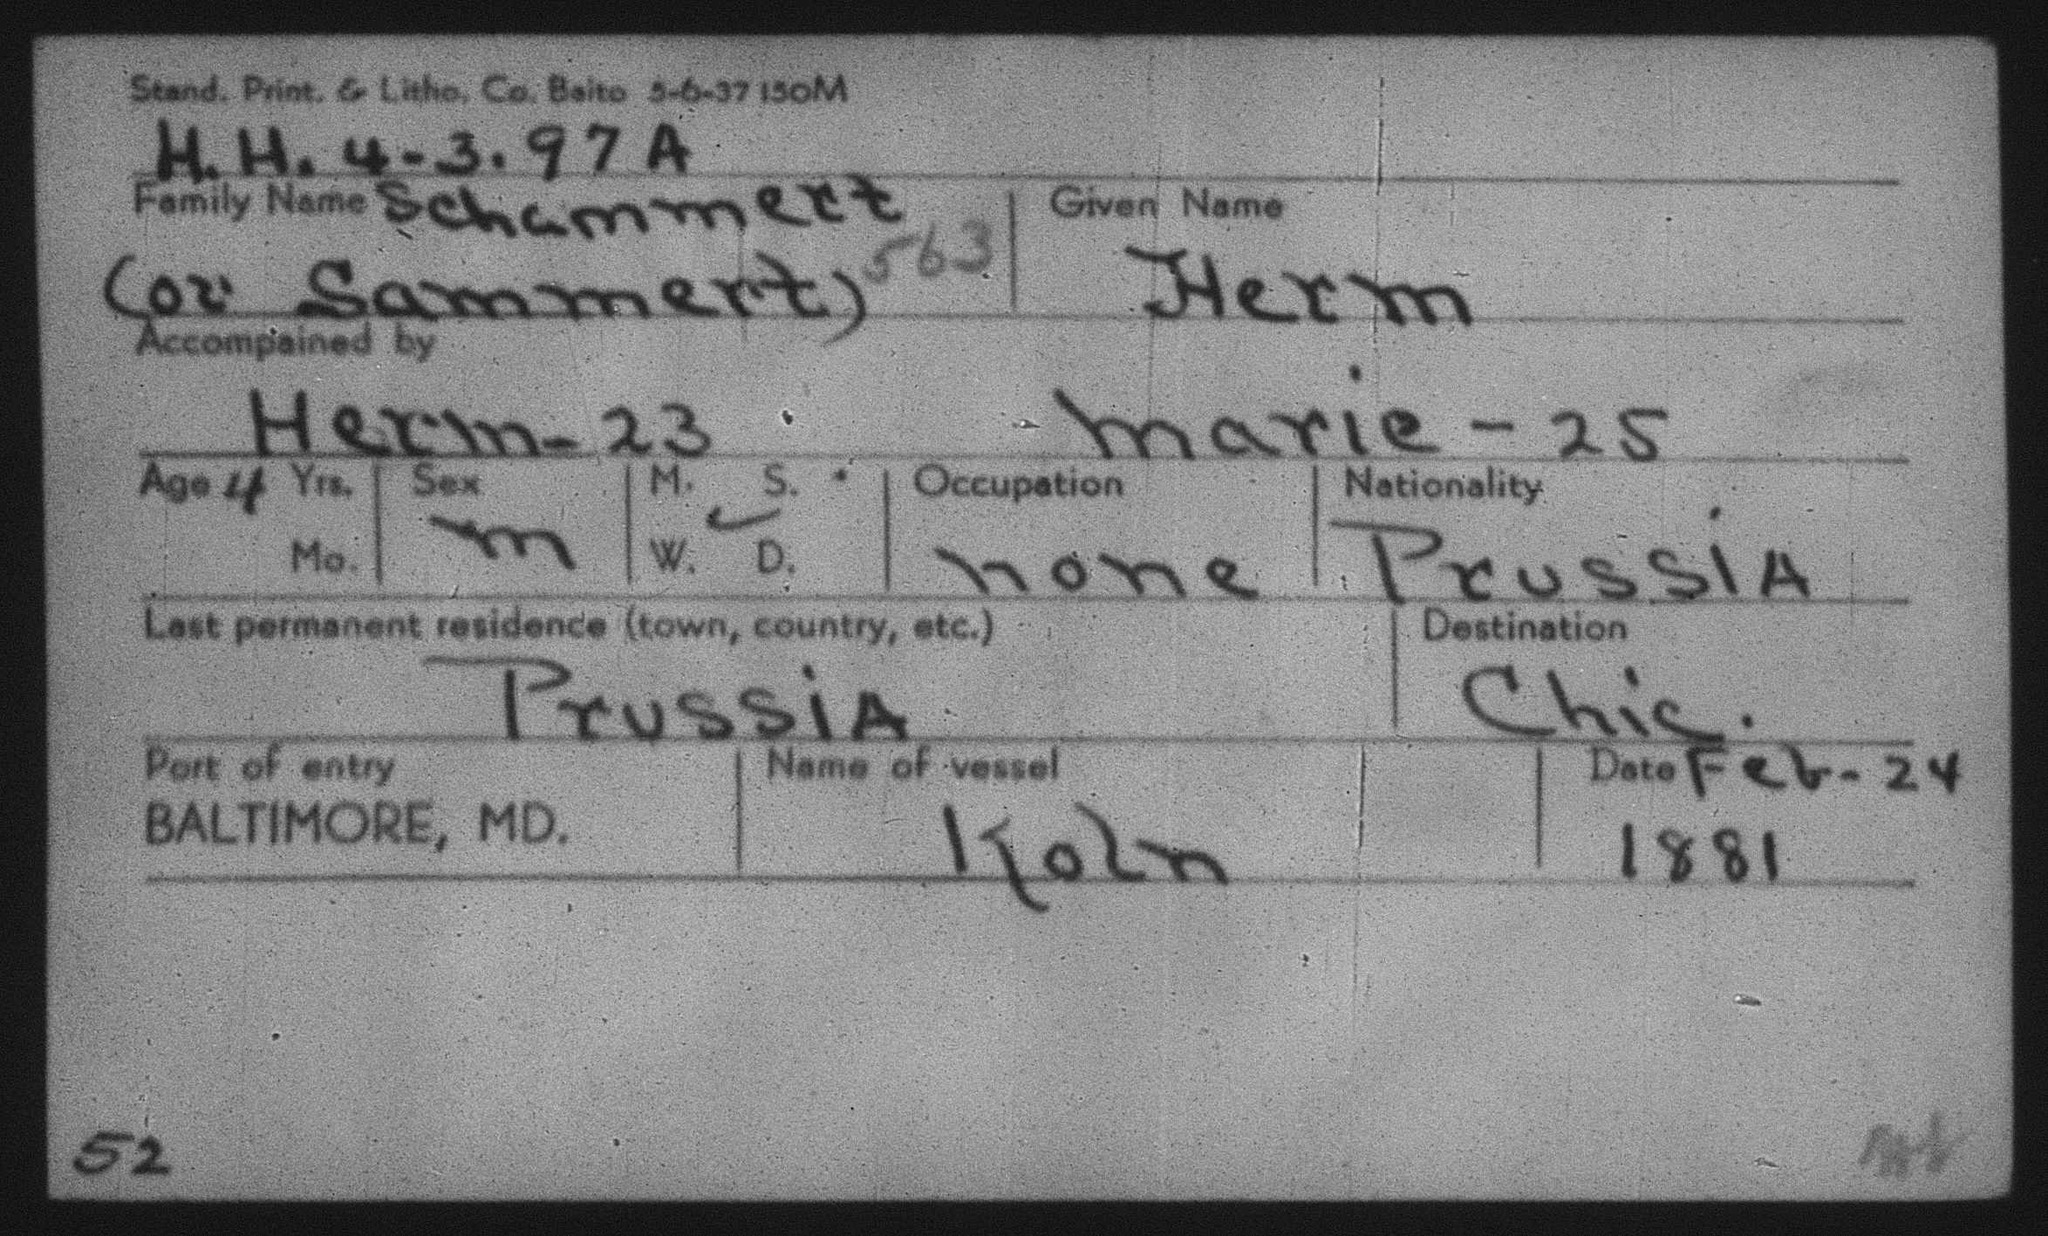 Stand. Print. & Litho. Co. Balto 5-6-37 150M
H.H. 4-3.97A
Family Name Schammert
(or Sammert) 563
Given Name
Herm
Accompained by
Herm - 23 Marie - 25
Age 4 Yrs. Mo.
Sex
m
M. S. ✓
W. D.
Occupation
none
Nationality
Prussia
Last permanent residence (town, country, etc.)
Prussia
Destination
Chic.
Port of entry
BALTIMORE, MD.
Name of vessel
Koln
Date Feb - 24
1881
52